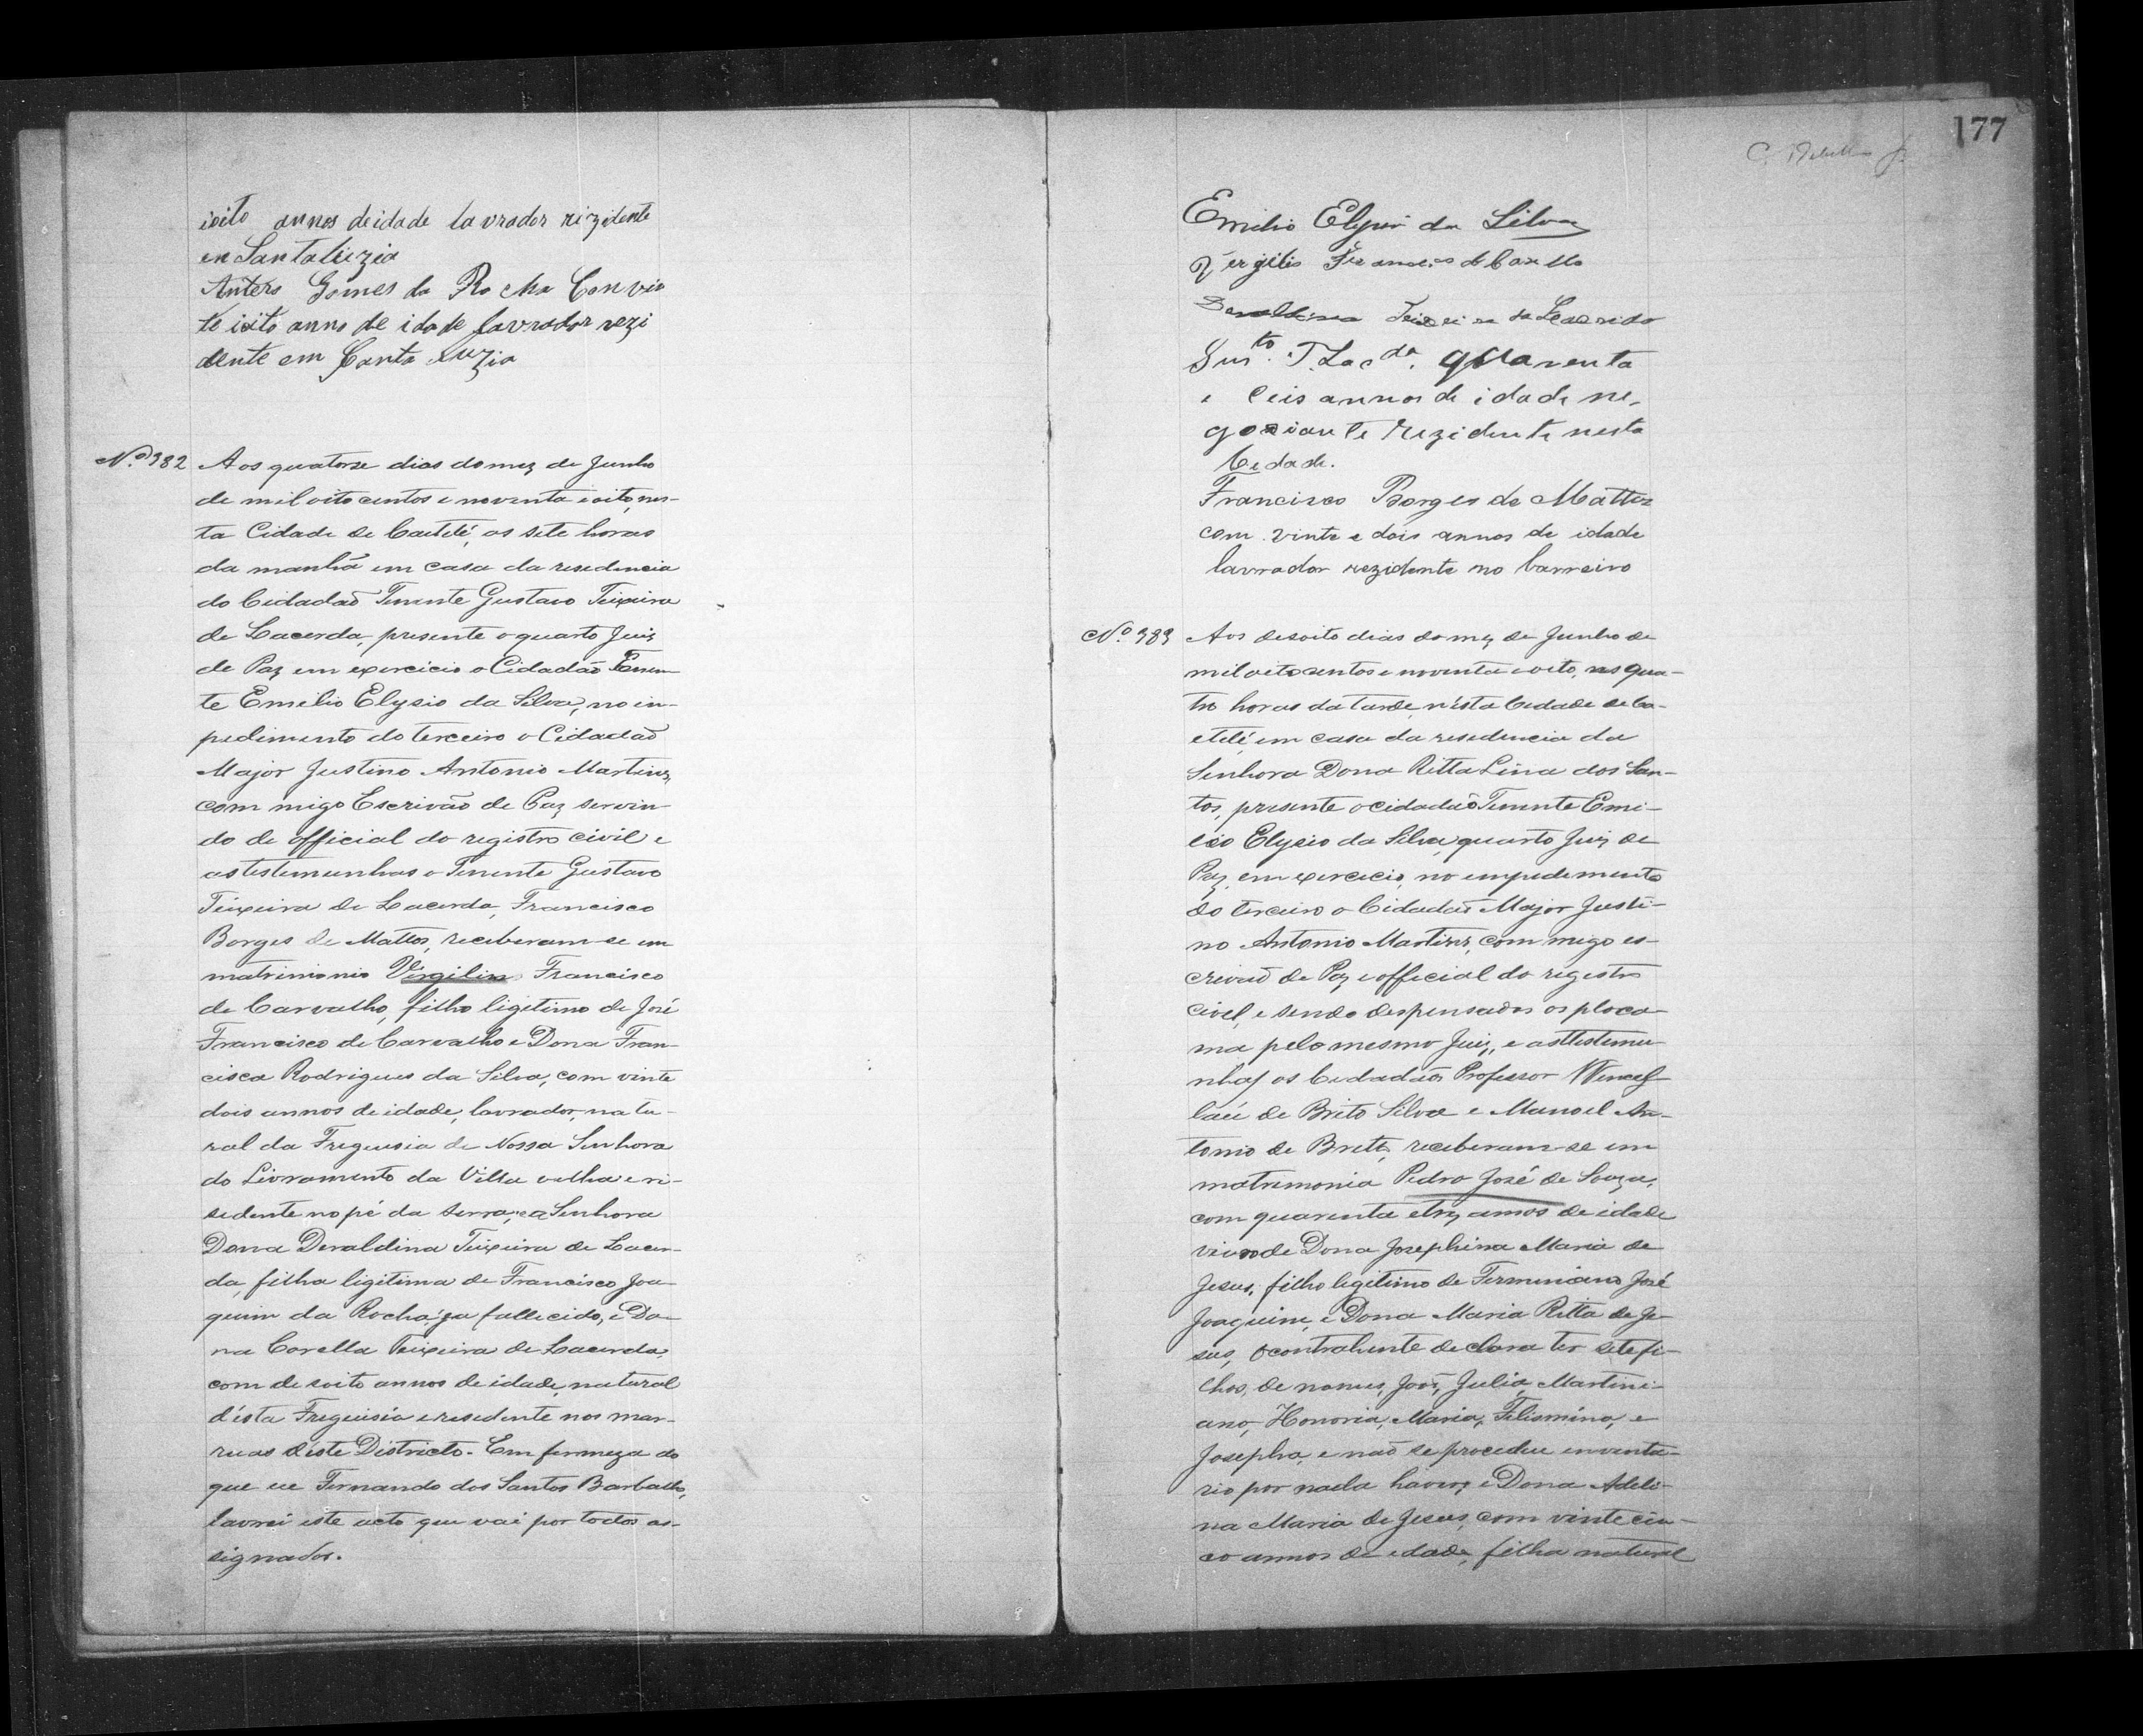 ioito annos deidade lavrador rizidente
en Santaluzia
Antero Gomes da Rocha Con vin
te ioito anno de idade lavrador rezi
dente em Santa Luzia
Nº 382 Aos quatorze dias do mez de Junho
de mil oito centos e noventa e oito, nes-
ta Cidade de Caeteté, as sete horas
da manhã em casa da residencia
do Cidadão Tenente Gustavo Teixeira
de Lacerda, presente o quarto Juiz
de Paz em exercicio o Cidadão Tenen-
te Emilio Elysio da Silva, no in-
pedimento do terceiro o Cidadão
Major Justino Antonio Martins,
com migo Escrivão de Paz servin-
do de official do registro civil e
as testemunhas o Tenente Gustavo
Teixeira de Lacerda, Francisco
Borges de Mattos, receberam-se em
matrimonio Virgilino Francisco
de Carvalho, filho ligitimo de José
Francisco de Carvalho e Dona Fran-
cisca Rodrigues da Silva, com vinte
dois annos de idade, lavrador, natu-
ral da Freguesia de Nossa Senhora
do Livramento da Villa velha e ri-
sedente no pé da serra, e a Senhora
Dona Deraldina Teixeira de Lacer-
da, filha ligitima de Francisco Joa-
quim da Rocha, ja fallecido, e Do-
na Corella Teixeira de Lacerda,
com desoito annos de idade, natural
d'esta Freguisia e residente nos mar-
ruas déste Districto. Em firmeza do
que eu Fernando dos Santos Barbalho,
lavrei este acto que vai por todos as-
signados.
177
Emilio Elysio da Silva
Vergilio Francisco de
Teixeira da
Gus.to T. Lac.da. quarenta
e Ceis annos de idade ne-
gosiante rezidente nesta
Cedade.
Francisco Borges de Mattos
com vinte e dois annos de idade
lavrador rezidente no barreiro
Nº 383 Aos desoito dias do mez de Junho de
mil oitocentos e noventa e oito, as qua-
tro horas da tarde, n'ésta Cedade de Ca-
eteté, em casa da residencia da
Senhora Dona Ritta Lina dos San-
tos, presente o cidadão Tenente Emi-
lio Elysio da Silva, quarto Juiz de
Paz, em exercecio, no empedemento
do terceiro o Cidadão Major Justi-
no Antonio Martins, com migo es-
crivão de Paz e official do registro
civel, e sendo despensados os ploca-
ma pelo mesmo Juiz, e asttestemu-
nhas os Cedadãos Professor Wences-
láu de Brito Silva e Manoel An-
tonio de Britto, receberam-se em
matremonia Pedro José de Souza,
com quarenta e trez annos de idade
viuvo de Dona Josephina Maria de
Jesus, filho legitimo de Ferminiano José
Joaquim, e Dona Maria Ritta de Je-
sus, O contrahente declara ter sete fi-
lhos, de nomes, João, Julia, Martini-
ano, Honoria, Maria, Felismina, e
Josepha, e não se procedeu enventa-
rio por nada haver, e Dona Adeli-
na Maria de Jesus, com vinte cin-
co annos de edade, filha natural